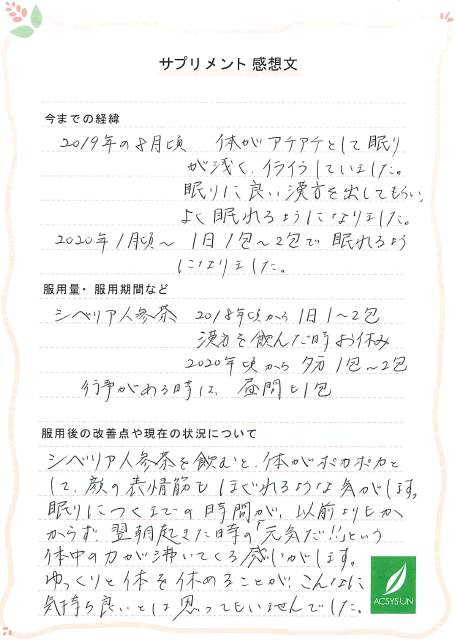 サプリメント 感想文
今までの経緯
2019年の8月頃 体がアチアチとして眠り
が浅く、イライラしていました。
眠りに良い漢方を出してもらい、
よく眠れるようになりました。
2020年1月頃～ 1日1包～2包で眠れるよう
になりました。
服用量・服用期間など
シベリア人参茶 2018年頃から1日1～2包
漢方を飲んだ時お休み
2020年頃から 夕方1包～2包
行事がある時は、昼間も1包
服用後の改善点や現在の状況について
シベリア人参茶を飲むと、体がポカポカと
して、顔の表情筋もほぐれるような気がします。
眠りにつくまでの時間が、以前よりもか
からず、翌朝起きた時の「元気だ!!」という
体中の力が沸いてくる感じがします。
ゆっくりと体を休めることが、こんなに
気持ち良いとは思ってもいませんでした。
ACSYSUN